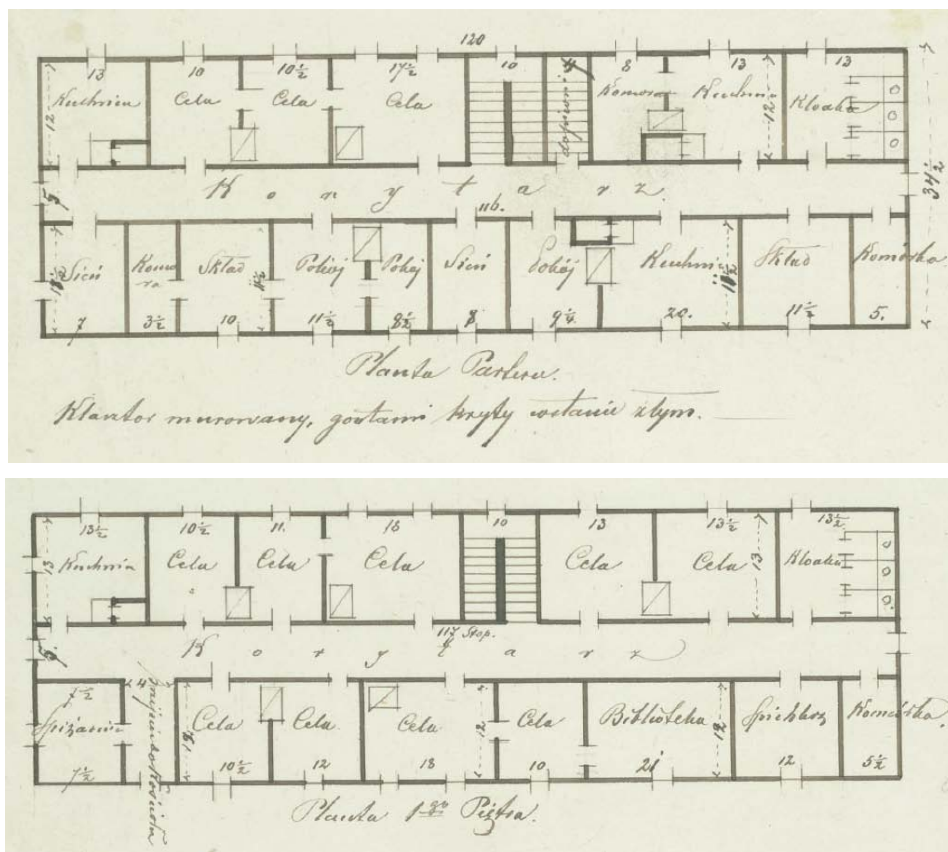 120
13 10 10½ 17½ 10 4 8 13 13
Kuchnia Cela Cela Cela do piwnic Komora Kuchnia Kloaka
12 12
34½
Korytarz
5
116.
Sień Komora Skład Pokój Pokój Sień Pokój Kuchnia Skład Komórka
11½ 11½
7 3½ 10 11½ 8½ 8 9¼ 20. 11½ 5.
Planta Parteru.
Klasztor murowany, gontami kryty wstanie złym.
13½ 10½ 11. 18 10 13 13½ 13½
Kuchnia Cela Cela Cela Cela Cela Kloaka
13 13
117 Stop.
Korytarz
7½ 4
Spiżarnia Cela Cela Cela Cela Biblioteka Spichlerz Komórka.
12 12 12
7½ 10½ 12 18 10 21 12 5½
Planta 1go Piętra.